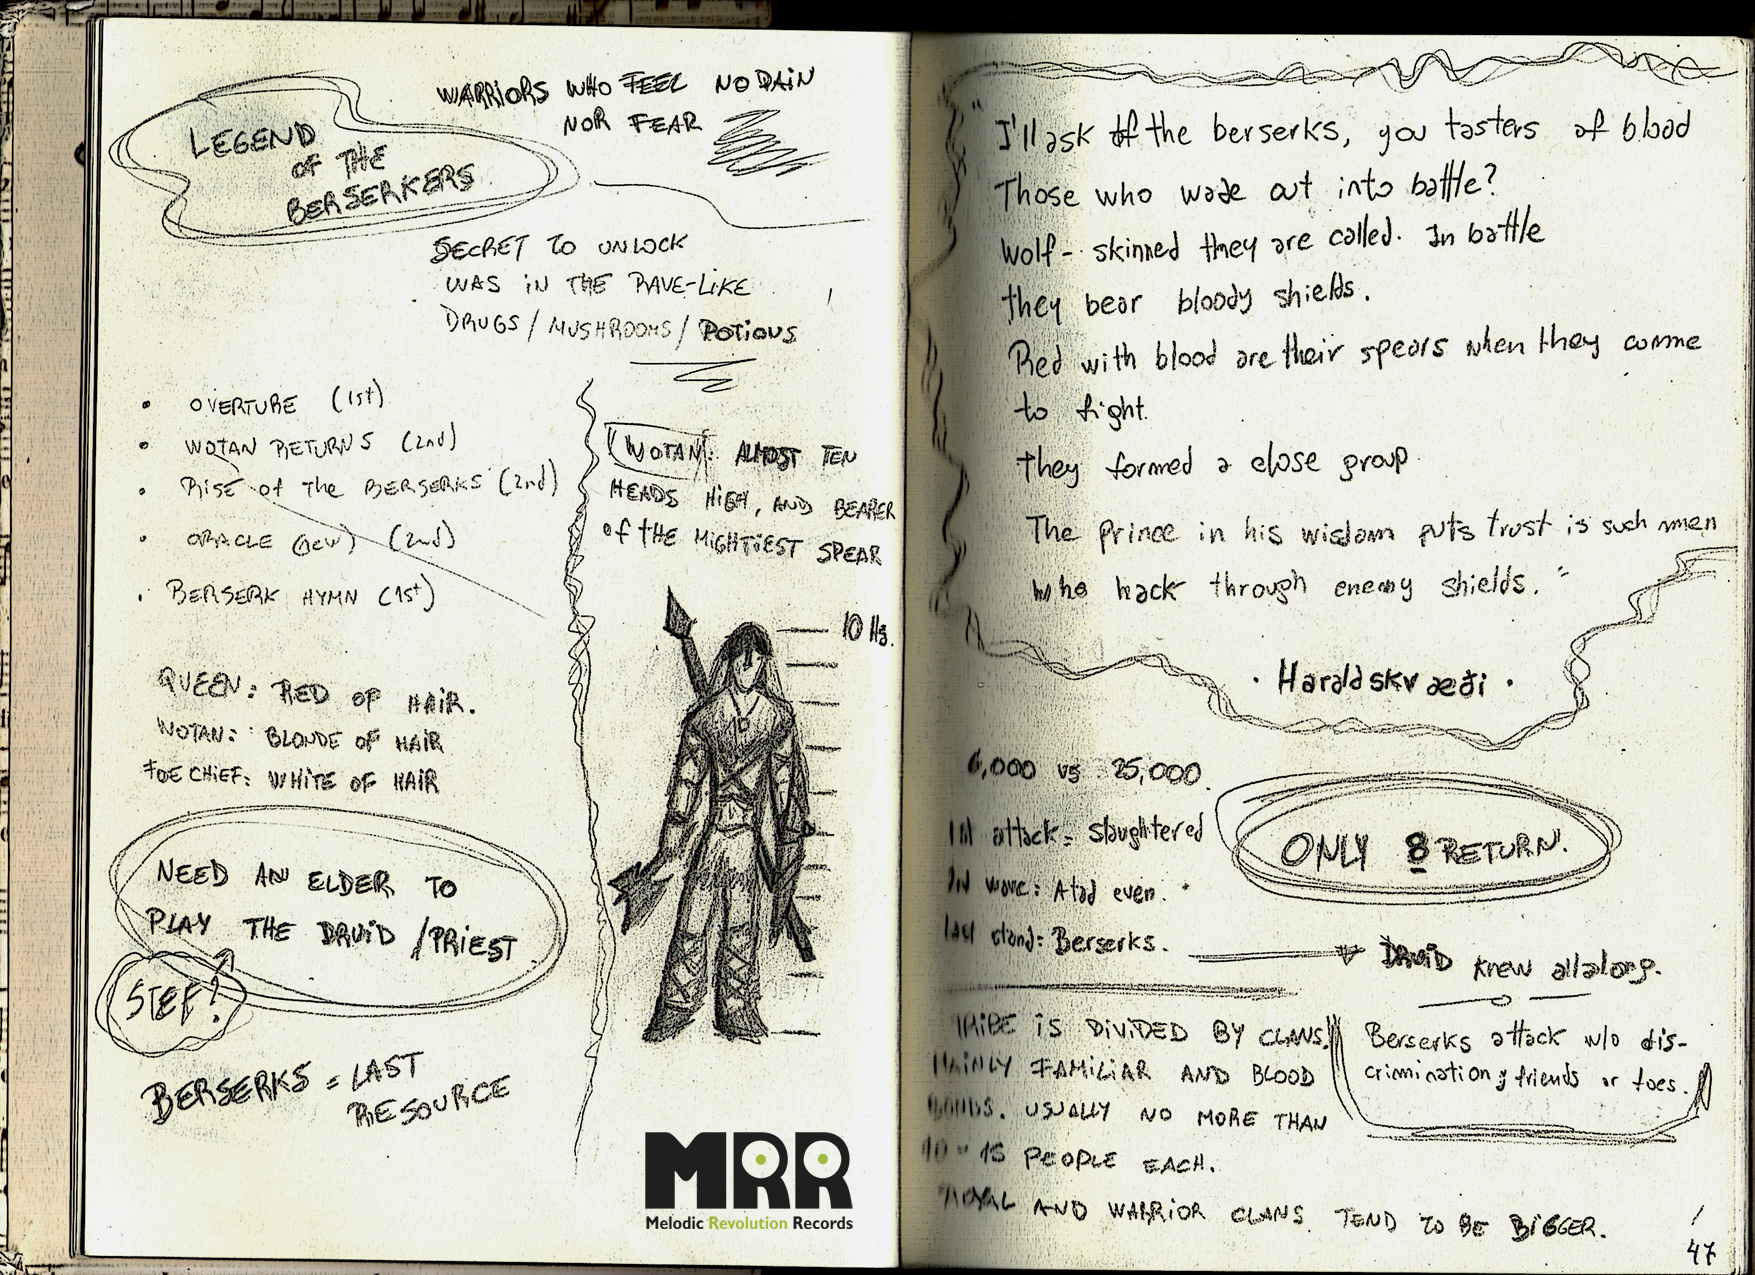 LEGEND
OF THE
BERSERKERS
WARRIORS WHO FEEL NO PAIN
NOR FEAR
SECRET TO UNLOCK
WAS IN THE RAVE-LIKE
DRUGS / MUSHROOMS / POTIONS
• OVERTURE (1st)
• WOTAN RETURNS (2nd)
• RISE of the BERSERKS (2nd)
• ORACLE (new) (2nd)
• BERSERK HYMN (1st)
WOTAN: ALMOST TEN
HEADS HIGH, AND BEARER
of THE MIGHTIEST SPEAR
10 Hs.
QUEEN: RED OF HAIR.
WOTAN: BLONDE OF HAIR
FOE CHIEF: WHITE OF HAIR
NEED AN ELDER TO
PLAY THE DRUID / PRIEST
STEF?
BERSERKS = LAST
RESOURCE
MRR
Melodic Revolution Records
"I'll ask of the berserks, you tasters of blood
Those who wade out into battle?
Wolf-skinned they are called. In battle
they bear bloody shields.
Red with blood are their spears when they comme
to fight.
They formed a close group.
The prince in his wisdom puts trust is such men
who hack through enemy shields."
· Haraldskvæði ·
6,000 vs 25,000.
1st attack = slaughtered
2nd wave: A tad even.
last stand: Berserks.
ONLY 8 RETURN.
DRUID knew all along.
TRIBE IS DIVIDED BY CLANS.
MAINLY FAMILIAR AND BLOOD
BONDS. USUALLY NO MORE THAN
10 - 15 PEOPLE EACH.
ROYAL AND WARRIOR CLANS TEND TO BE BIGGER.
Berserks attack w/o dis-
crimination; friends or foes.
47